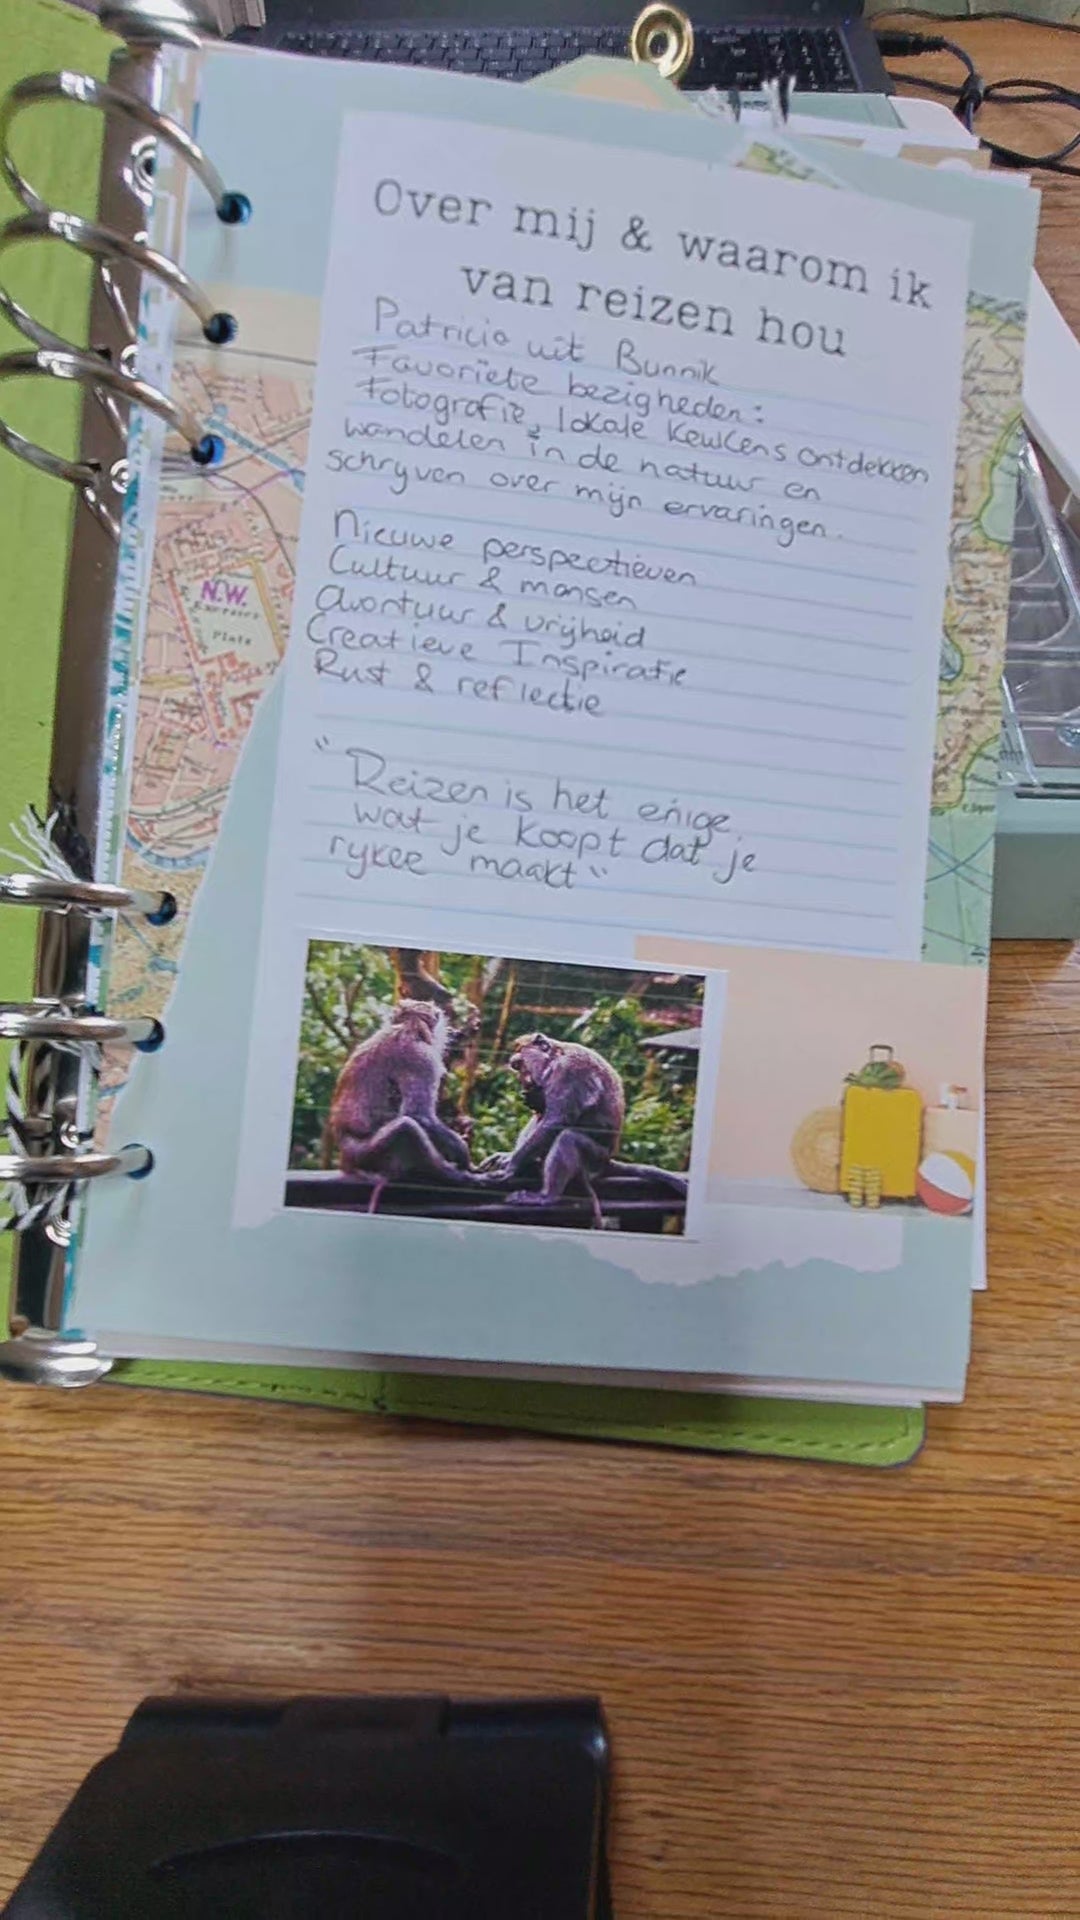 Over mij & waarom ik
van reizen hou
Patricia uit Bunnik
Favoriete bezigheden:
Fotografie, lokale keukens ontdekken
wandelen in de natuur en
schryven over mijn ervaringen.
Nieuwe perspectieven
Cultuur & mensen
Avontuur & vrijheid
Creatieve Inspiratie
Rust & reflectie
"Reizen is het enige
wat je koopt dat je
ryker maakt"
N.W.
Plate